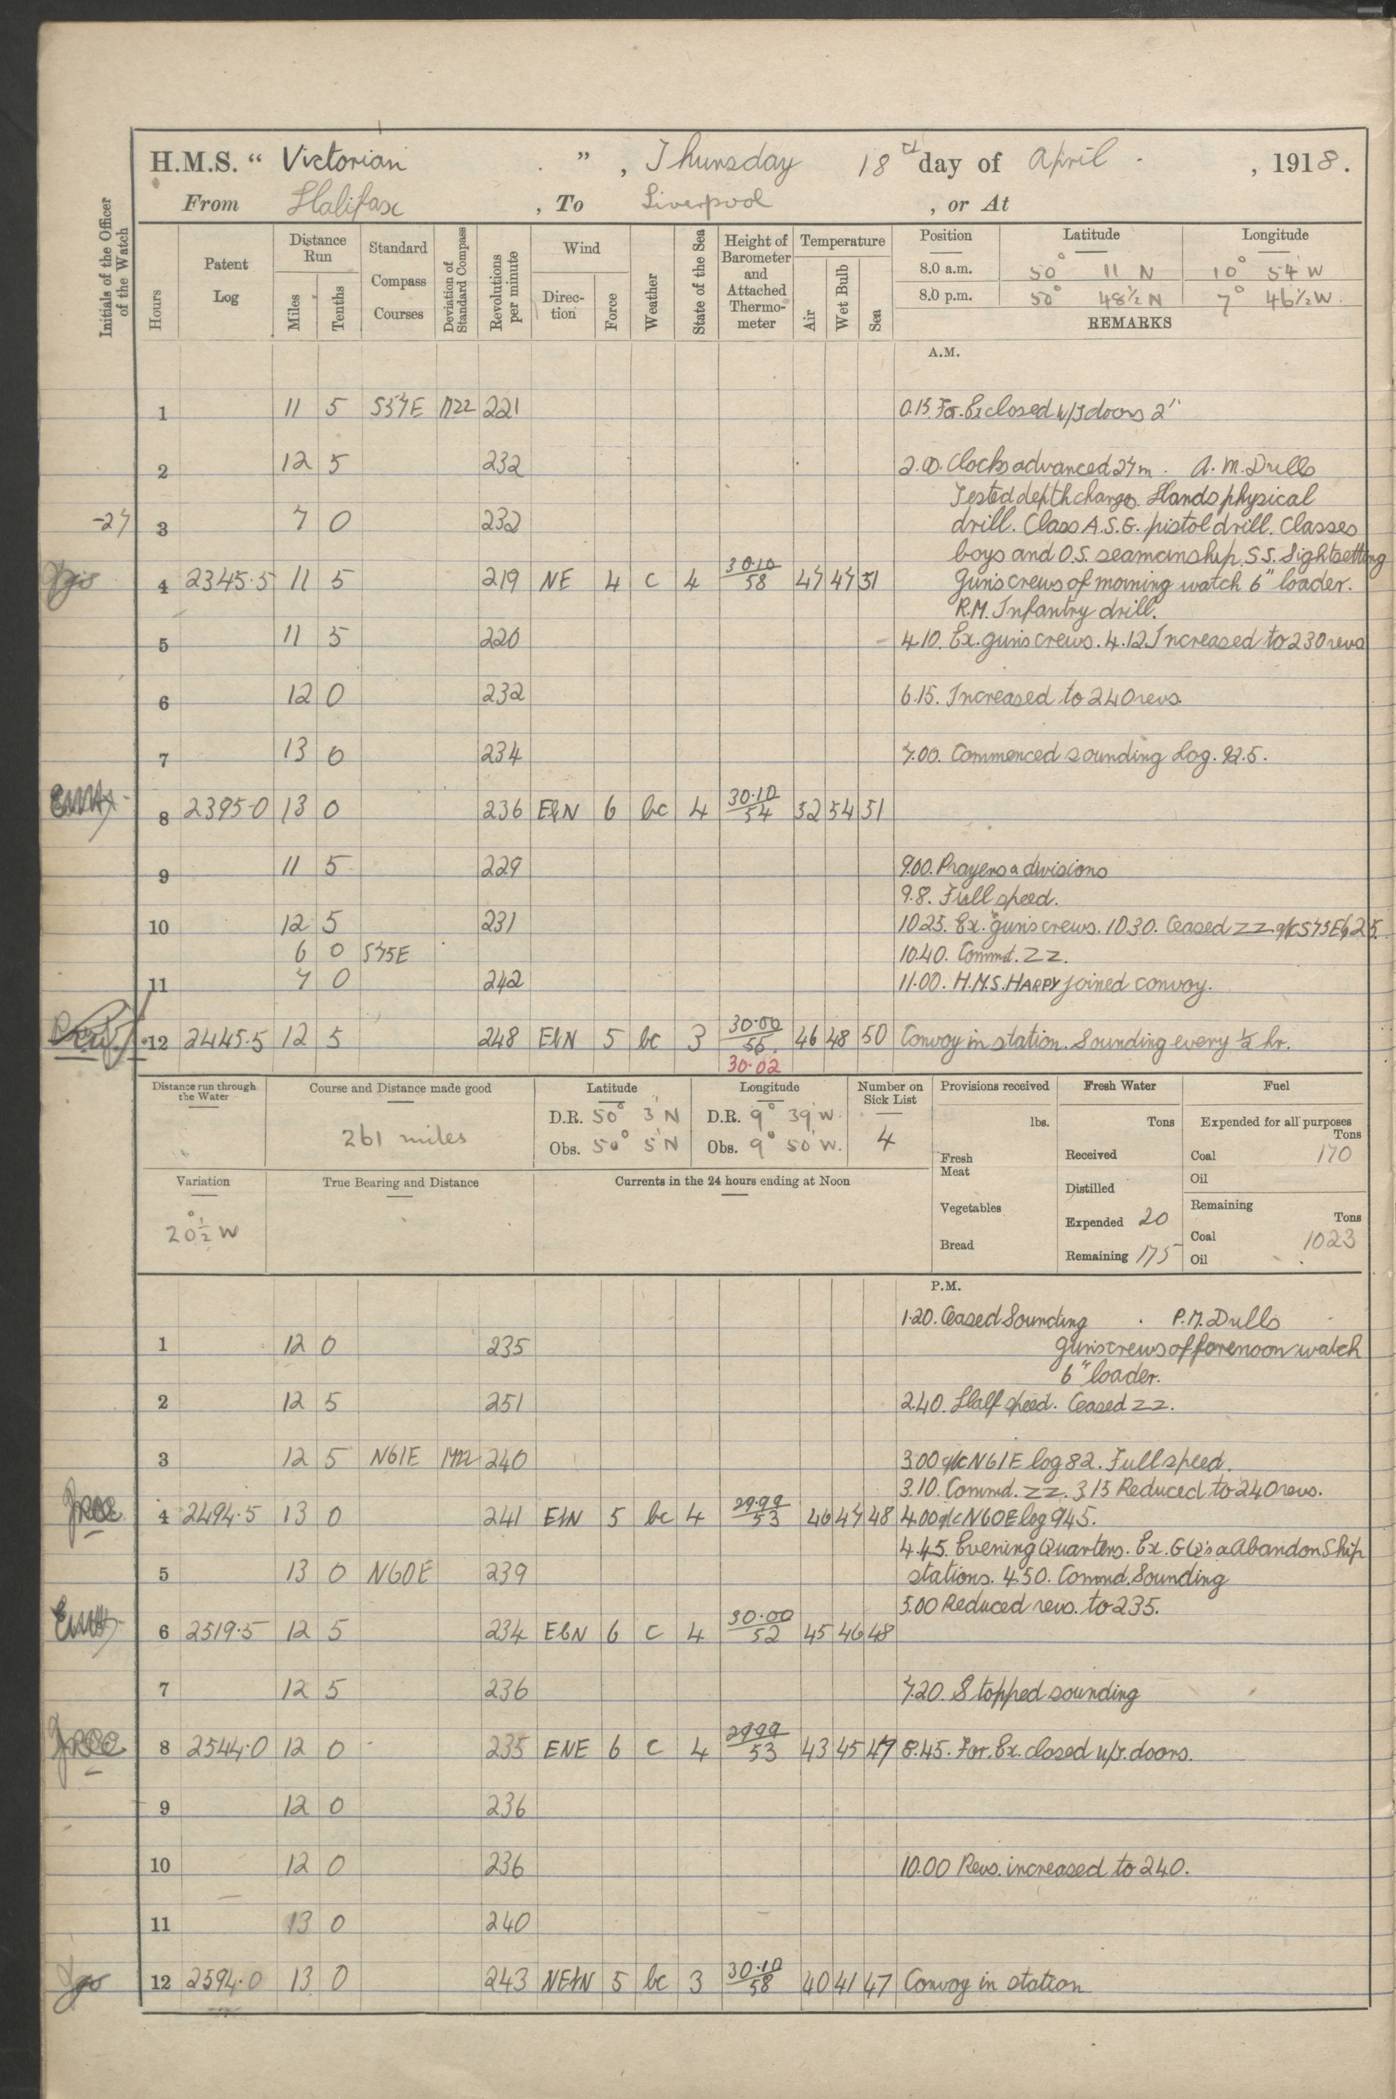 H.M.S. “ Victorian ” , Thursday 18 day of April , 1918.
From Halifax , To Liverpool , or At
Initials of the Officer of the Watch
Hours
Patent Log
Distance Run
Miles
Tenths
Standard Compass Courses
Deviation of Standard Compass
Revolutions per minute
Wind
Direction
Force
Weather
State of the Sea
Height of Barometer and Attached Thermometer
Temperature
Air
Wet Bulb
Sea
Position Latitude Longitude
8.0 a.m. 50° 11 N 10° 54' W
8.0 p.m. 50° 48½ N 7° 46½ W.
REMARKS
A.M.
1 11 5 S57E 221 0.15. For. Ex closed w/T doors 2"
2 12 5 232 2.0. Clocks advanced 27m. A.M. Drills
Tested depth charges. Hands physical
-27 3 7 0 232 drill. Class A.S.G. pistol drill. Classes
boys and O.S. seamanship. S.S. Sightsetting
4 2345.5 11 5 219 NE 4 c 4 30.10/58 47 47 51 Gun's crews of morning watch 6" loader.
R.M. Infantry drill.
5 11 5 220 4.10. Ex. gun's crews. 4.12 Increased to 230 revs
6 12 0 232 6.15. Increased to 240 revs.
7 13 0 234 7.00. Commenced sounding Log. 82.5.
8 2395.0 13 0 236 EbN 6 bc 4 30.10/54 52 54 51
9 11 5 229 9.00. Prayers & divisions
9.8. Full speed.
10 12 5 231 10.25. Ex. gun's crews. 10.30. Ceased ZZ. a/c S75E
6 0 S75E 10.40. Commd. ZZ.
11 7 0 242 11.00. H.M.S. HARPY joined convoy.
12 2445.5 12 5 248 EbN 5 bc 3 30.00/56. 46 48 50 Convoy in station. Sounding every ½ hr.
30.02
Distance run through the Water
Course and Distance made good
261 miles
Latitude
D.R. 50° 3' N
Obs. 50° 5' N
Longitude
D.R. 9° 39' W.
Obs. 9° 50' W.
Number on Sick List
4
Provisions received
lbs.
Fresh Meat
Vegetables
Bread
Fresh Water
Tons
Received
Distilled
Expended 20
Remaining 175
Fuel
Expended for all purposes
Tons
Coal 170
Oil
Remaining
Tons
Coal 1023
Oil
Variation
20½° W
True Bearing and Distance
Currents in the 24 hours ending at Noon
P.M.
1.20. Ceased Sounding P.M. Drills
1 12 0 235 Gun's crews of forenoon watch
6" loader.
2 12 5 251 2.40. Half speed. Ceased ZZ.
3 12 5 N61E 240 3.00 a/c N61E log 82. Full speed.
3.10. Commd. ZZ. 3.15 Reduced to 240 revs.
4 2494.5 13 0 241 EbN 5 bc 4 29.99/53 46 47 48 4.00 a/c N60E log 94.5.
4.45. Evening Quarters. Ex. G.Q's & Abandon Ship
5 13 0 N60E 239 stations. 4.50. Commd. Sounding
5.00 Reduced revs. to 235.
6 2519.5 12 5 234 EbN 6 c 4 30.00/52 45 46 48
7 12 5 236 7.20. Stopped sounding
8 2544.0 12 0 235 ENE 6 c 4 29.99/53 43 45 47 8.45. For. Ex. closed w/T. doors.
9 12 0 236
10 12 0 236 10.00 Revs. increased to 240.
11 13 0 240
12 2594.0 13 0 243 NEbN 5 bc 3 30.10/58 40 41 47 Convoy in station